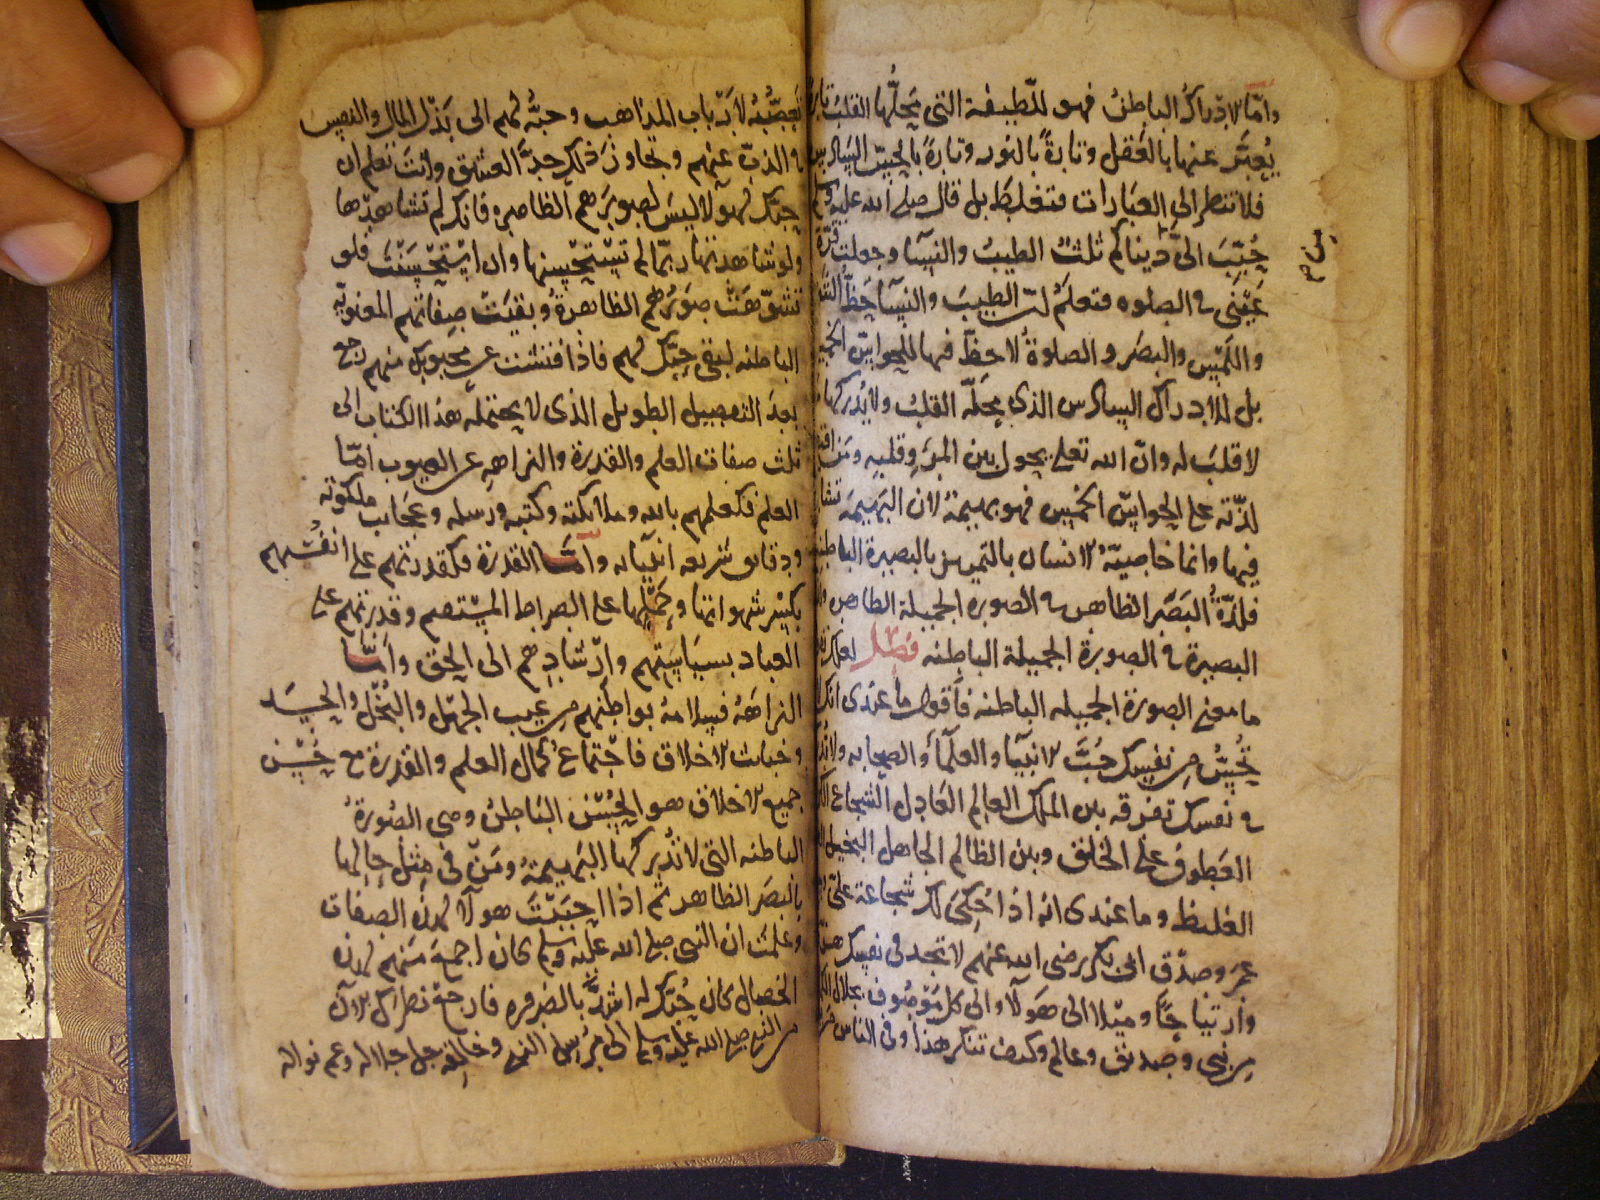 وامّا الادراك الباطن فهو للّطيفة التي محلّها القلب تارة
يُعبَّر عنها بالعقل وتارةً بالنور وتارةً بالحِسّ السادس
فلا تنظر الى العبارات فتغلط بل قال صلى الله عليه وسلم
حُبّبَ الىّ من دنياكم ثلث الطيبُ والنسآ وجعلت قرّة
عَيْنى فى الصلوه فتعلم ان الطيبَ والنسآ حظّ الشم
واللمس والبصر والصلوة لا حظّ فيها للحواسّ الخمس
بل للادراك السادس الذى محلّه القلب ولا يُدركها من
لا قلبَ له وان الله تعلى يحول بين المرء وقلبه ومن اقتصر
لذّته على الحواسّ الخمس فهو بهيمة لان البهيمة تشاركه
فيها وانما خاصيّة الانسان بالتميز بالبصيرة الباطنة
فلذّة البَصَر الظاهر فى الصورة الجميلة الظاهرة ولذة
البصيرة فى الصورة الجميلة الباطنه فصل لعلك تقول
ما معنى الصورة الجميله الباطنه فأقول ما عندى انك لا
تُحِسُّ من نفسِك حُبَّ الانبيآ والعلمآ والصحابه ولا تدرك
فى نفسك تفرقه بين الملك العالم العَادل الشجاع الكريم
العَطوف على الخلق وبين الظالم الجاهل البخيل الفظ
الغليظ وما عندى انه اذا حُكىَ لك شجاعة علىّ وسياسة
عمر وصدّق ابى بكر رضى الله عنهم لا تجد فى نفسك هزة
وارتياحًا وميْلا الى هَولآ والى كل مَوْصُوف بخلال الكمال
من نبى وصديق وعالم وكيف تنكر هذا وفى الناس من
تعصّبُه لارْباب المذاهب وحبُّه لهم الى بَذْل المال والنفس
فى الذبّ عنهم وتجاوز ذلك حدَّ العشق وانت تعلم ان
حبّك لهولآ ليسَ لصوبَرهم الظاهره فانك لم تشاهدْها
ولو شاهدتها ربّما لم تسْتحْسِنها وان اسْتحْسَنْتَ فلو
تشوّهَتْ صوَرُهم الظاهرة وبقيَتْ صِفاتهم المعنويّه
الباطنه لبقى حبّك لهم فاذا فتشت عن محبوبك منهم رجع
بعد التفصيل الطويل الذى لا يحتمله هذا الكتاب الى
ثلث صفات العلم والقدرة والنزاهه عن العيوب امّا
العلم فكعلمهم بالله وملائكته وكتبه ورسله وعجايب ملكوته
ودقايق شريعه انبيآيه وامّا القدرة فكقدرتهم على انفُسهم
بكسْر شهواتها وحَمْلِها على الصراط المسْتقيم وقدرتهم على
العباد بسياسَتِهم وارْشادِهم الى الحق وامّا
النزاهَة فبسلامة بواطنهم من عيب الجهْل والبُخْل والحسَد
وخباثت الاخلاق فاجْتماعُ كمال العلم والقدرة مع حُسْن
جميع الاخلاق هو الحُسْن الباطن وهى الصُورة
الباطنه التى لا تُدْركها البَهيمةُ ومَن فى مِثل حَالها
بالبصَر الظاهر ثم اذا احبَبْتَ هولآ لهذه الصفات
وعلمْت ان النبى صلى الله عليه وسلم كان اجمعَ منهم لهذه
الخصال كان حُبّك له اشدّ بالضروره فارجعْ نظرَك الان
من النبى صلى الله عليه وسلم الى مُرْسِل النبى وخالقه جل جلاله وعم نواله